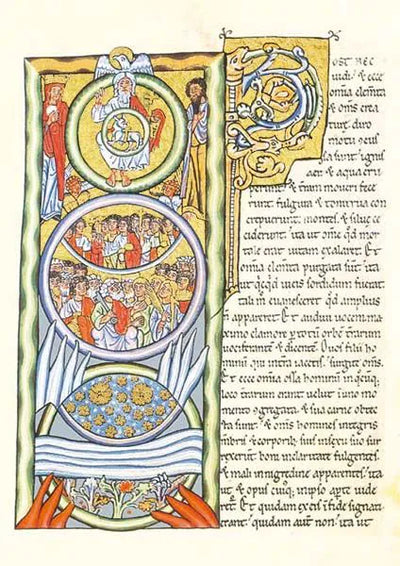 Post hec
uidi & ecce
om̅ia elem̅ta
& om̅s crea
ture diro
motu ꝯcus
sa sunt. ignis
aer & aqua eru
perunt & terram moueri fece
runt. fulgura & tonitrua con
crepuerunt. montes & silue ce
ciderunt. ita ut om̅e qd̅ mor
tale erat uitam exalaret. Et
om̅ia elem̅ta purgata sunt. ita
ut qͥcqͥd in eis sordidum fuerat
tali m̊ euanesceret qd̅ amplius
n̅ appareret. Et audiui uocem ma
ximo clamore ꝑ totū orbē t̅rarum
uociferantē & dicentē. O uos filii ho
minū qui in terra iacetis. surgite om̅s.
Et ecce om̅ia ossa hominū in q̊cūq;
loco terrarum erant uelut ī uno mo
mento ꝯgregata & sua carne obtec
ta sunt. & om̅s homines integris
membris & corporib; suis in sexu suo sur
rexerunt. boni in claritate fulgentes.
& mali in nigredine apparentes. ita
ut & opus cuiq; in ipso apte uide
ret̅. Et quidam ex eis in fide signati
erant. quidam aut̅ non. ita ut